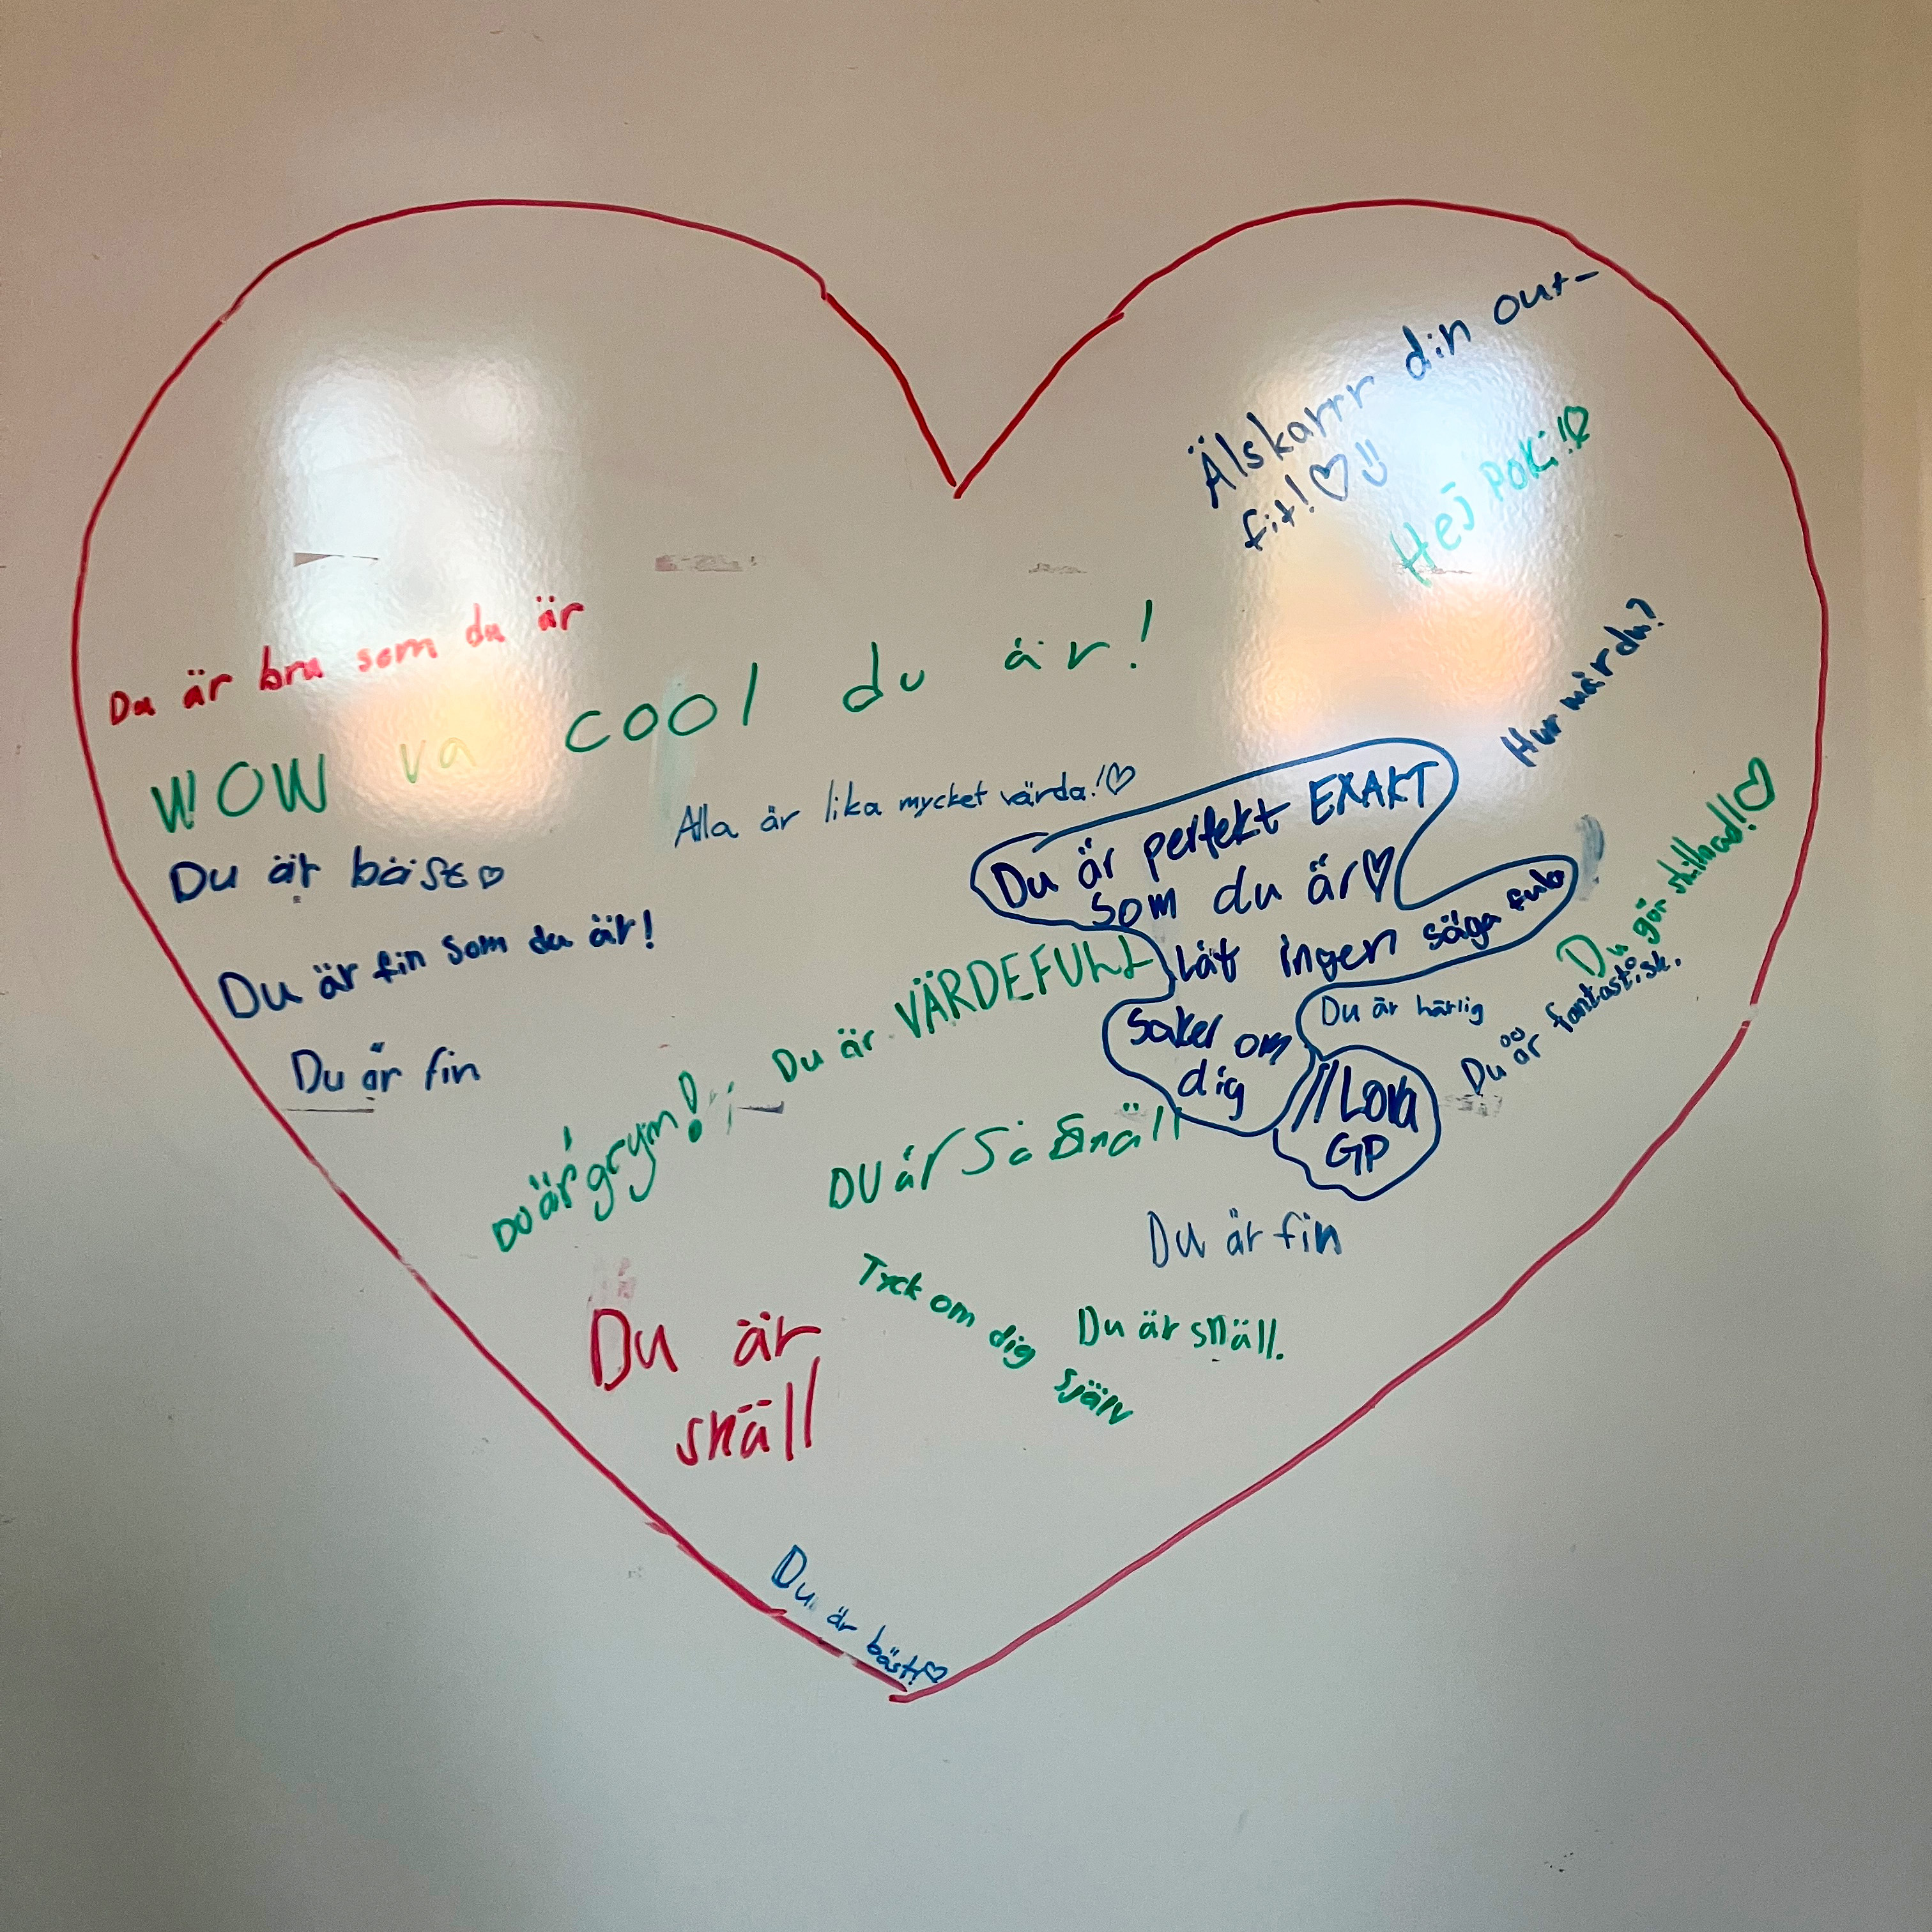 Älskarrr din out-
fit!♡
Hej POKi!♡
Du är bra som du är
WOW va cool du är!
Hur mår du?
Alla är lika mycket värda!♡
Du är bäst♡
Du är perfekt EXAKT
som du är♡
Låt ingen säga fula
saker om
dig
//Lova
GP
Du är härlig
Du gör skillnad!♡
Du är fantastisk.
Du är fin som du är!
Du är fin
Du är VÄRDEFULL
DU är grym!
DU är Så Snäll
Du är fin
Tyck om dig själv
Du är snäll.
Du är
snäll
Du är bäst!♡